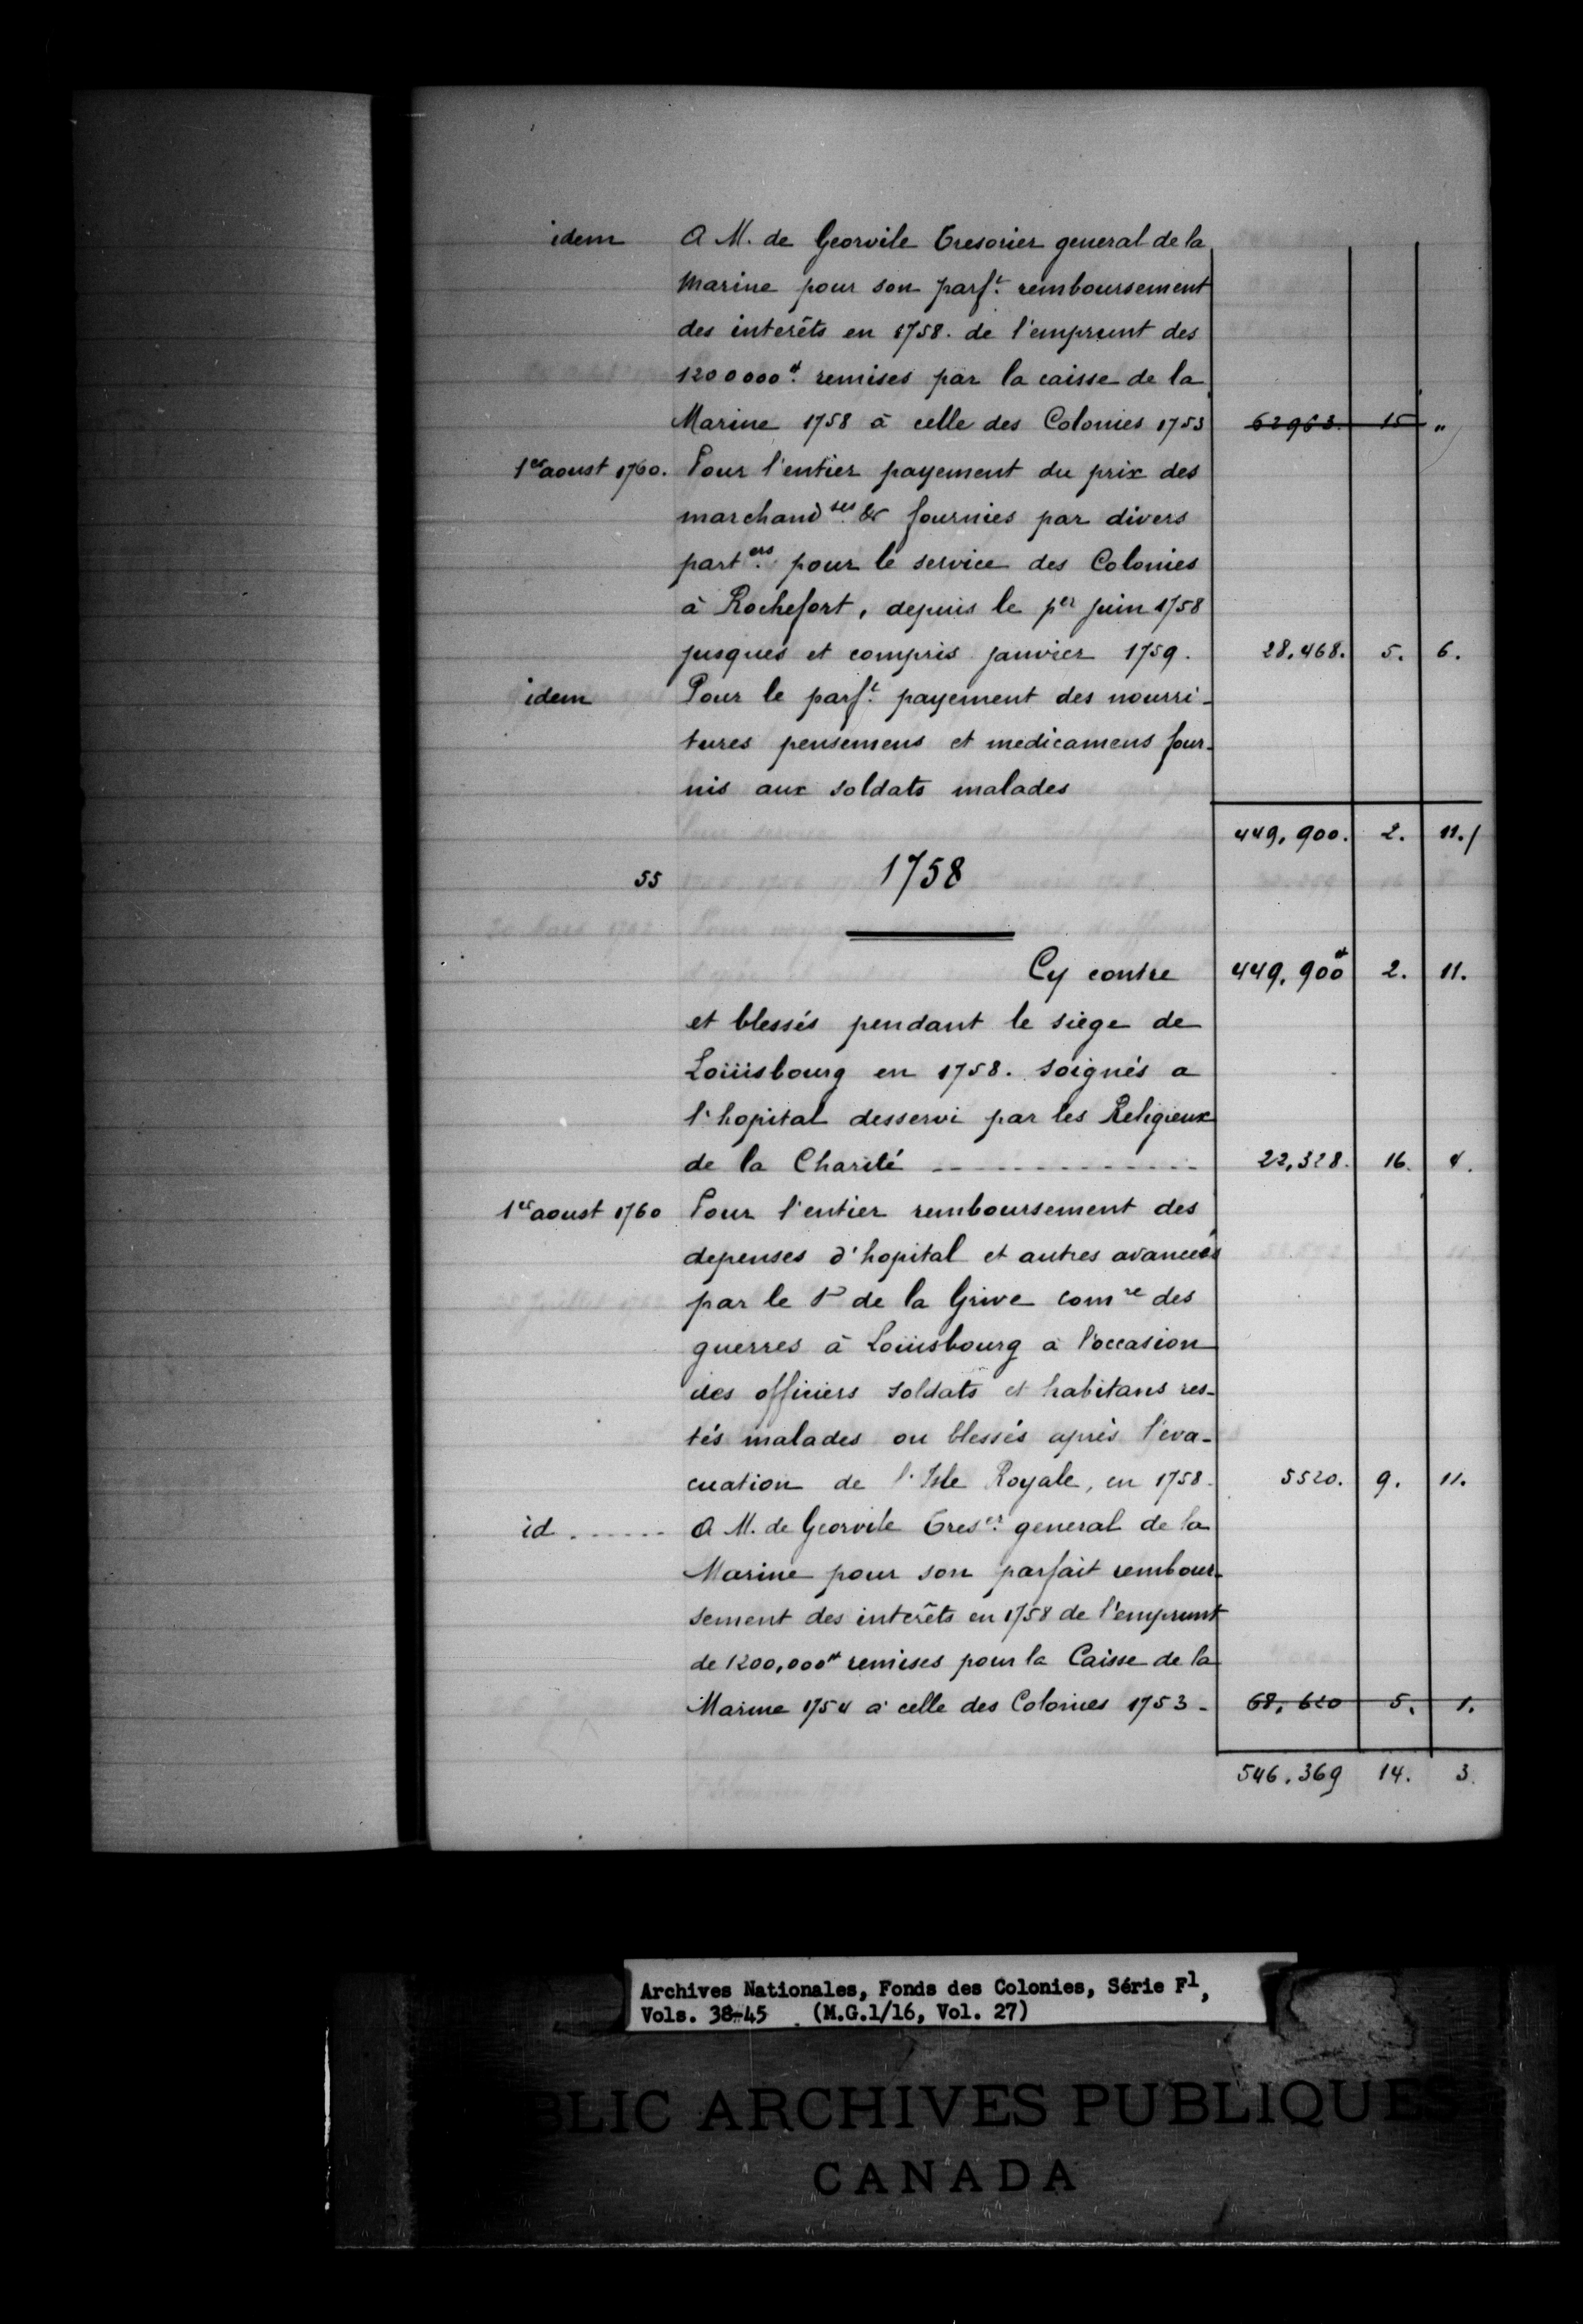 idem A M. de Georvile Tresorier general de la
Marine pour son parft. remboursement
des interêts en 1758. de l'emprunt des
1200000#. remises par la caisse de la
Marine 1758 à celle des Colonies 1753 62963. 15 "
1er aoust 1760. Pour l'entier payement du prix des
marchandses. &c fournies par divers
parters. pour le service des Colonies
à Rochefort, depuis le per juin 1758
jusques et compris janvier 1759. 28.468. 5. 6.
idem Pour le parft. payement des nourri-
tures pensemens et medicamens four-
nis aux soldats malades
449,900. 2. 11./
55 1758
Cy contre 449,900# 2. 11.
et blessés pendant le siege de
Loüisbourg en 1758. soignés a
l'hopital desservi par les Religieux
de la Charité 22,328. 16. 4.
1er aoust 1760 Pour l'entier remboursement des
depenses d'hopital et autres avancées
par le Sr de la Grive comre des
guerres à Loüisbourg à l'occasion
des officiers soldats et habitans res-
tés malades ou blessés après l'éva-
cuation de l'Isle Royale, en 1758. 5520. 9. 11.
id ...... A M. de Georvile Treser. general de la
Marine pour son parfait rembour-
sement des interêts en 1758 de l'emprunt
de 1200,000# remises pour la Caisse de la
Marine 1754 à celle des Colonies 1753 - 68,620 5. 1.
546.369 14. 3.
Archives Nationales, Fonds des Colonies, Série F1,
Vols. 38-45 (M.G.1/16, Vol. 27)
BLIC ARCHIVES PUBLIQUES
CANADA